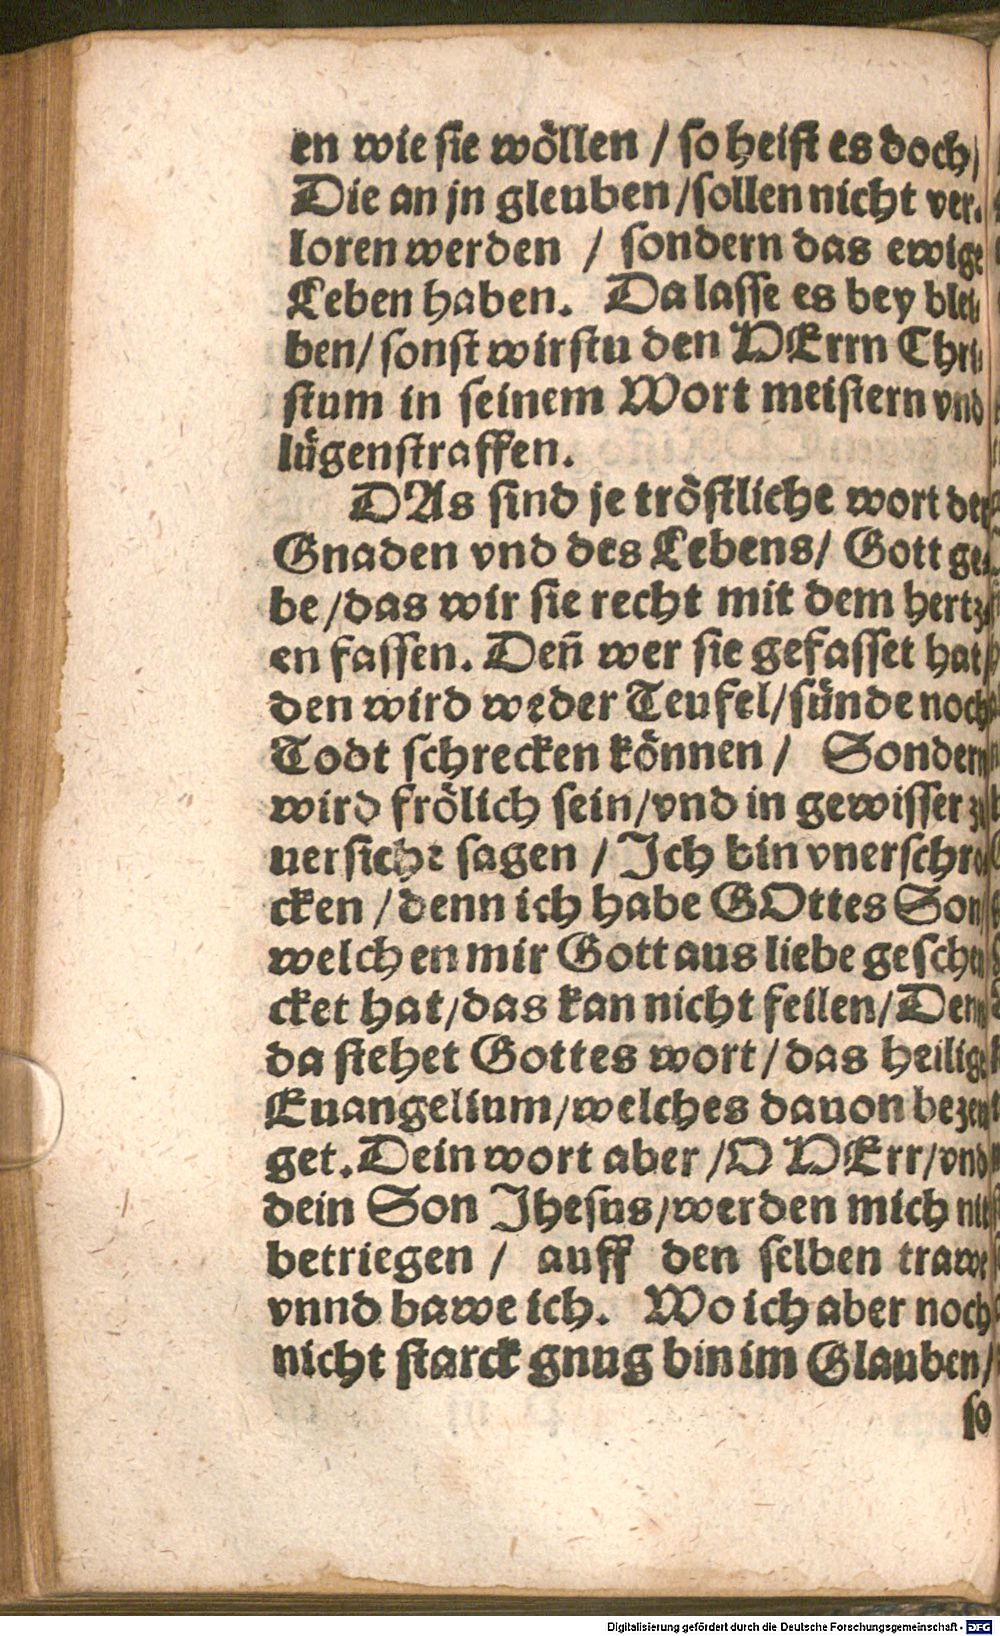 en wie sie wöllen / so heist es doch /
Die an jn gleuben / sollen nicht ver-
loren werden / sondern das ewige
Leben haben. Da lasse es bey blei-
ben / sonst wirstu den HErrn Chri-
stum in seinem Wort meistern vnd
lügenstraffen.
DAs sind je tröstliche wort der
Gnaden vnd des Lebens / Gott ge-
be / das wir sie recht mit dem hertz-
en fassen. Deñ wer sie gefasset hat /
den wird weder Teufel / sünde noch
Todt schrecken können / Sondern
wird frölich sein / vnd in gewisser zu
uersicht sagen / Ich bin vnerschro-
cken / denn ich habe GOttes Son /
welchen mir Gott aus liebe geschen
cket hat / das kan nicht feilen / Denn
da stehet Gottes wort / das heilige
Euangelium / welches dauon bezeu
get. Dein wort aber / O HErr / vnd
dein Son Jhesus / werden mich nit
betriegen / auff den selben trawe
vnnd bawe ich. Wo ich aber noch
nicht starck gnug bin im Glauben /
so
Digitalisierung gefördert durch die Deutsche Forschungsgemeinschaft - DFG